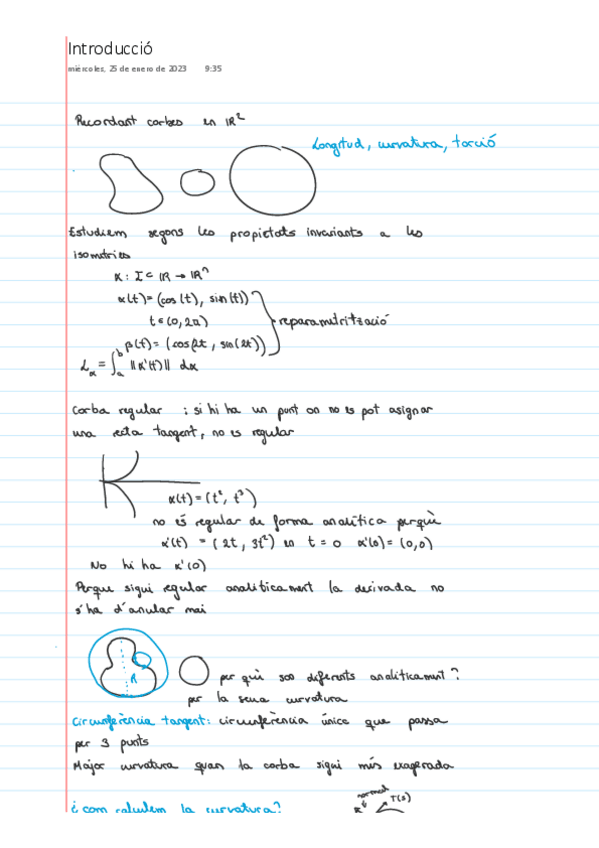 Introducció
miércoles, 25 de enero de 2023 9:35
Recordant corbes en IR²
Longitud, curvatura, torció
Estudiem segons les propietats invariants a les
isometries
α: I ⊂ IR → IRⁿ
α(t) = (cos(t), sin(t))
t ∈ (0, 2π)
reparametrització
β(t) = (cos(2t, sin(2t))
L_α = ∫_a^b ||α'(t)|| dx
Corba regular : si hi ha un punt on no es pot asignar
una recta tangent, no es regular
α(t) = (t², t³)
no és regular de forma analítica perquè
α'(t) = (2t, 3t²) en t = 0 α'(0) = (0,0)
No hi ha α'(0)
Perque sigui regular analiticament la derivada no
s'ha d'anular mai
R
per què son diferents analiticament?
per la seua curvatura
Circumferència tangent: circumferència única que passa
per 3 punts
Major curvatura quan la corba sigui més exagerada
¿com calculem la curvatura?
normal
T(s)